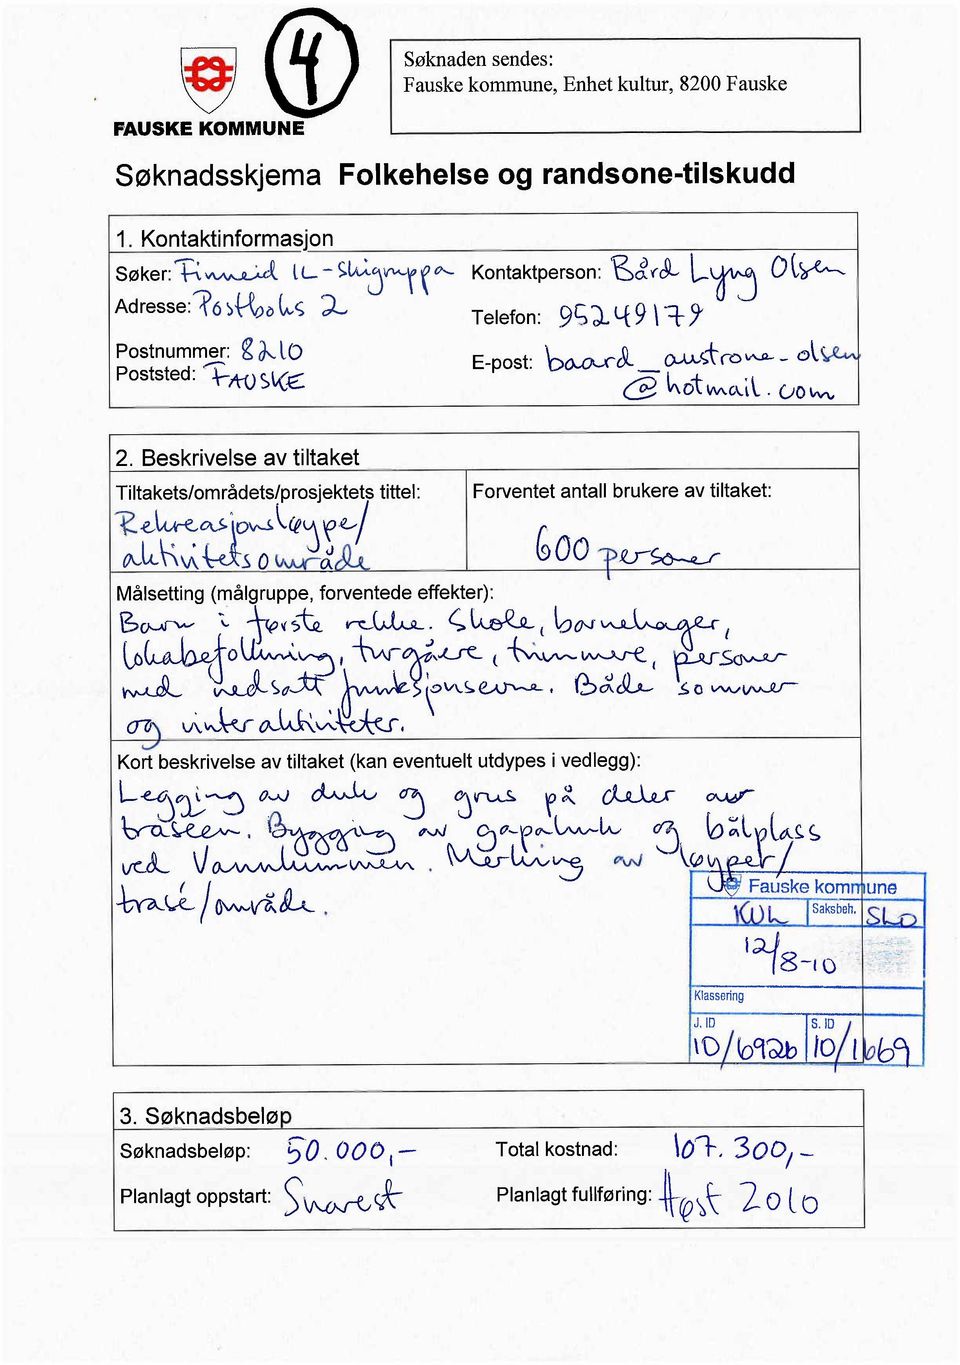 4
FAUSKE KOMMUNE
Søknaden sendes:
Fauske kommune, Enhet kultur, 8200 Fauske
Søknadsskjema Folkehelse og randsone-tilskudd
1. Kontaktinformasjon
Søker: Finneid IL - Skigruppa
Kontaktperson: Bård Lyng Olsen
Adresse: Postboks 2
Telefon: 95249179
Postnummer: 8210
Poststed: FAUSKE
E-post: baard_austrone-olsen
@hotmail.com
2. Beskrivelse av tiltaket
Tiltakets/områdets/prosjektets tittel:
Rekreasjonsløype/
aktivitetsområde
Forventet antall brukere av tiltaket:
600 personer
Målsetting (målgruppe, forventede effekter):
Barn i første rekke. Skole, barnehager,
lokabefolkning, turgåere, trimmere, personer
med nedsatt funksjonsevne. Både sommer
og vinteraktiviteter.
Kort beskrivelse av tiltaket (kan eventuelt utdypes i vedlegg):
Legging av duk og grus på deler av
traséen. Bygging av gapahuk og bålplass
ved Vannkummen. Merking av løyper/
trasé/område.
Fauske kommune
KUL Saksbeh. SLO
12/8-10
Klassering
J. ID S. ID
10/6926 10/1669
3. Søknadsbeløp
Søknadsbeløp: 50.000,-
Total kostnad: 107.300,-
Planlagt oppstart: Snarest
Planlagt fullføring: Høst 2010